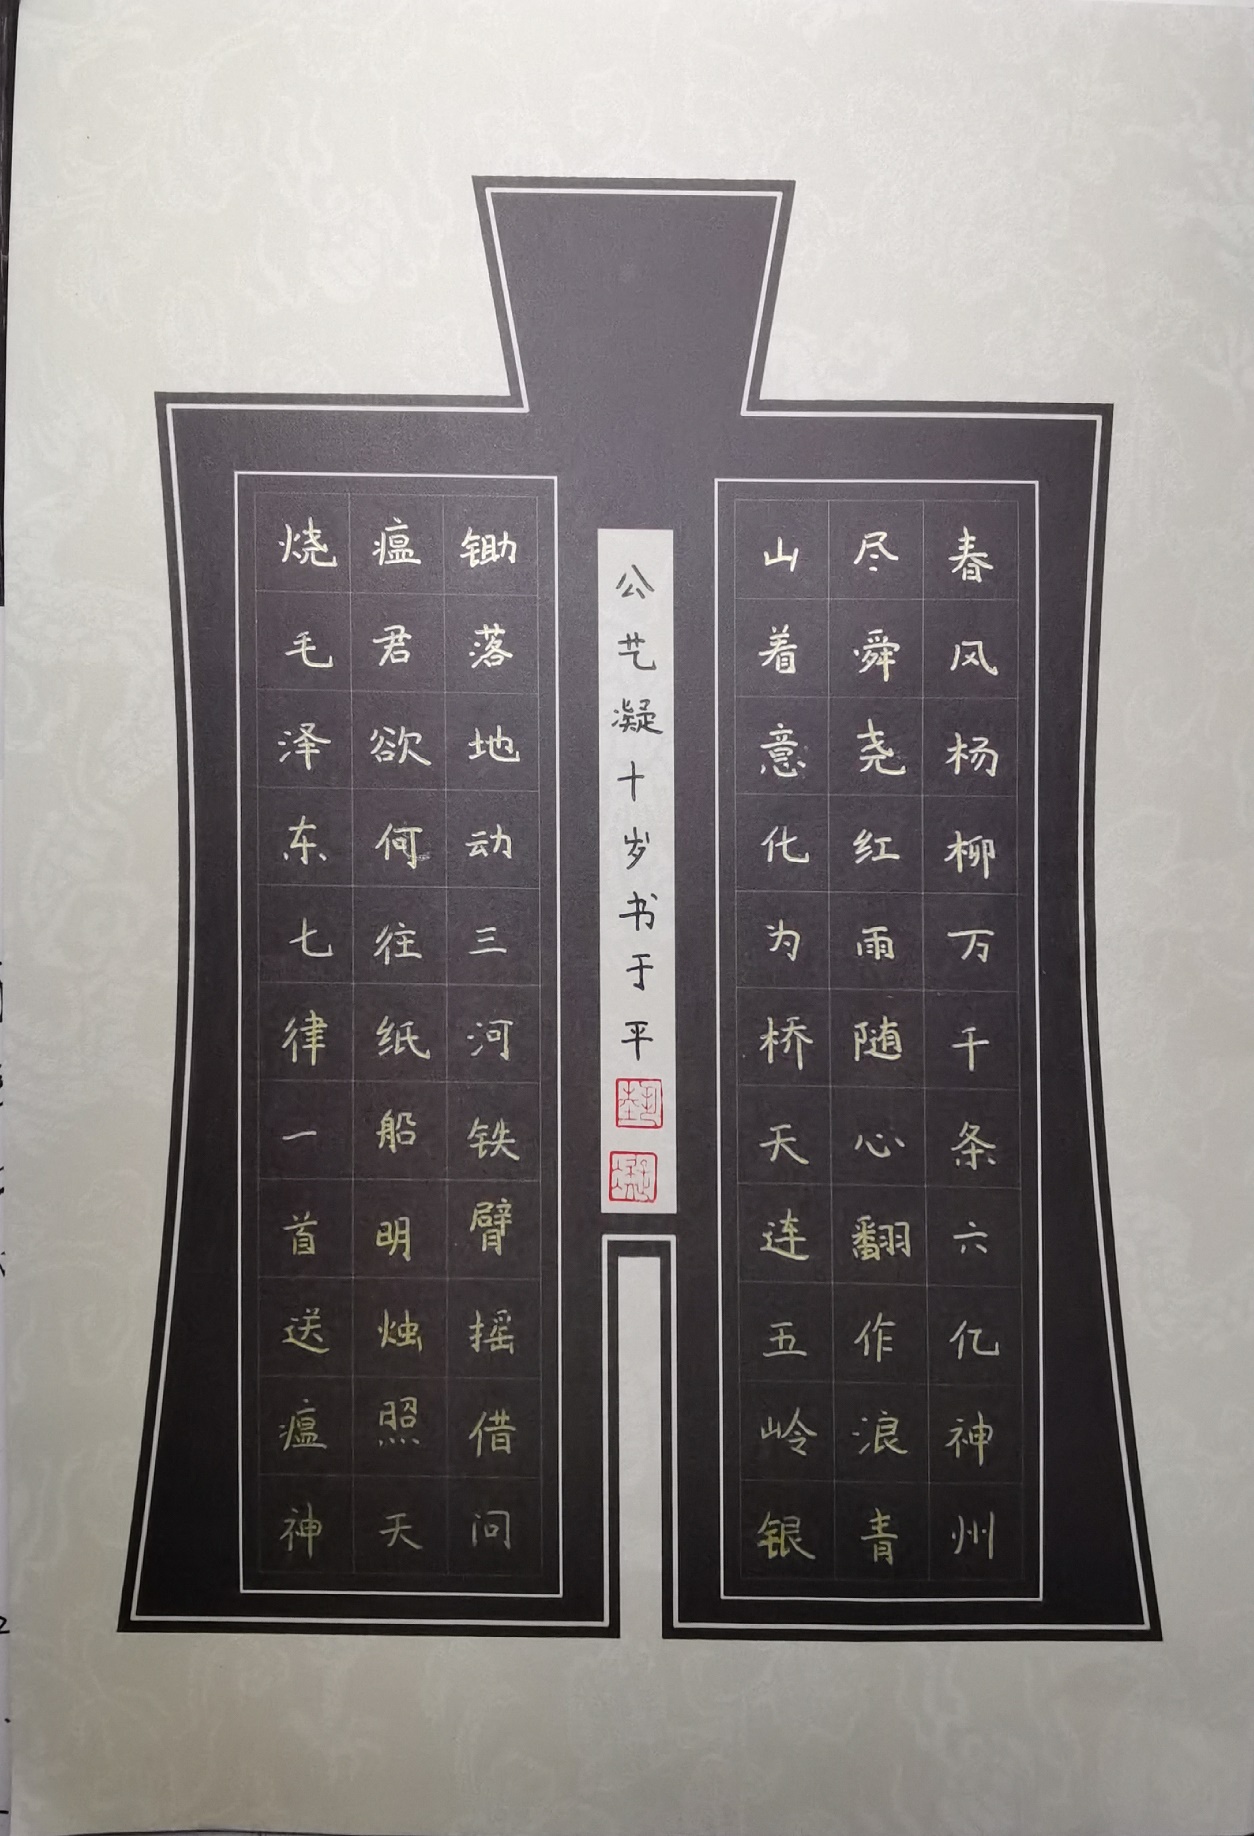 春风杨柳万千条六亿神州
尽舜尧红雨随心翻作浪青
山着意化为桥天连五岭银
公艺凝十岁书于平
锄落地动三河铁臂摇借问
瘟君欲何往纸船明烛照天
烧毛泽东七律一首送瘟神